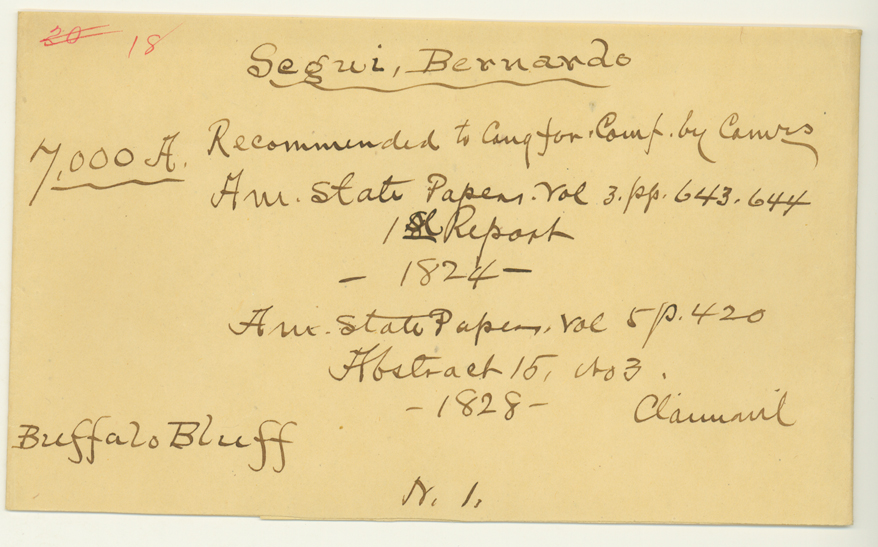 20 18
Segui, Bernardo
7,000 A. Recommended to Cong for. Comf. by Comrs
Am. State Papers. Vol 3. pp. 643. 644
1st Report
- 1824 -
Am. State Papers. Vol 5 p. 420
Abstract 15, No 3.
- 1828 -
Buffalo Bluff
N. 1.